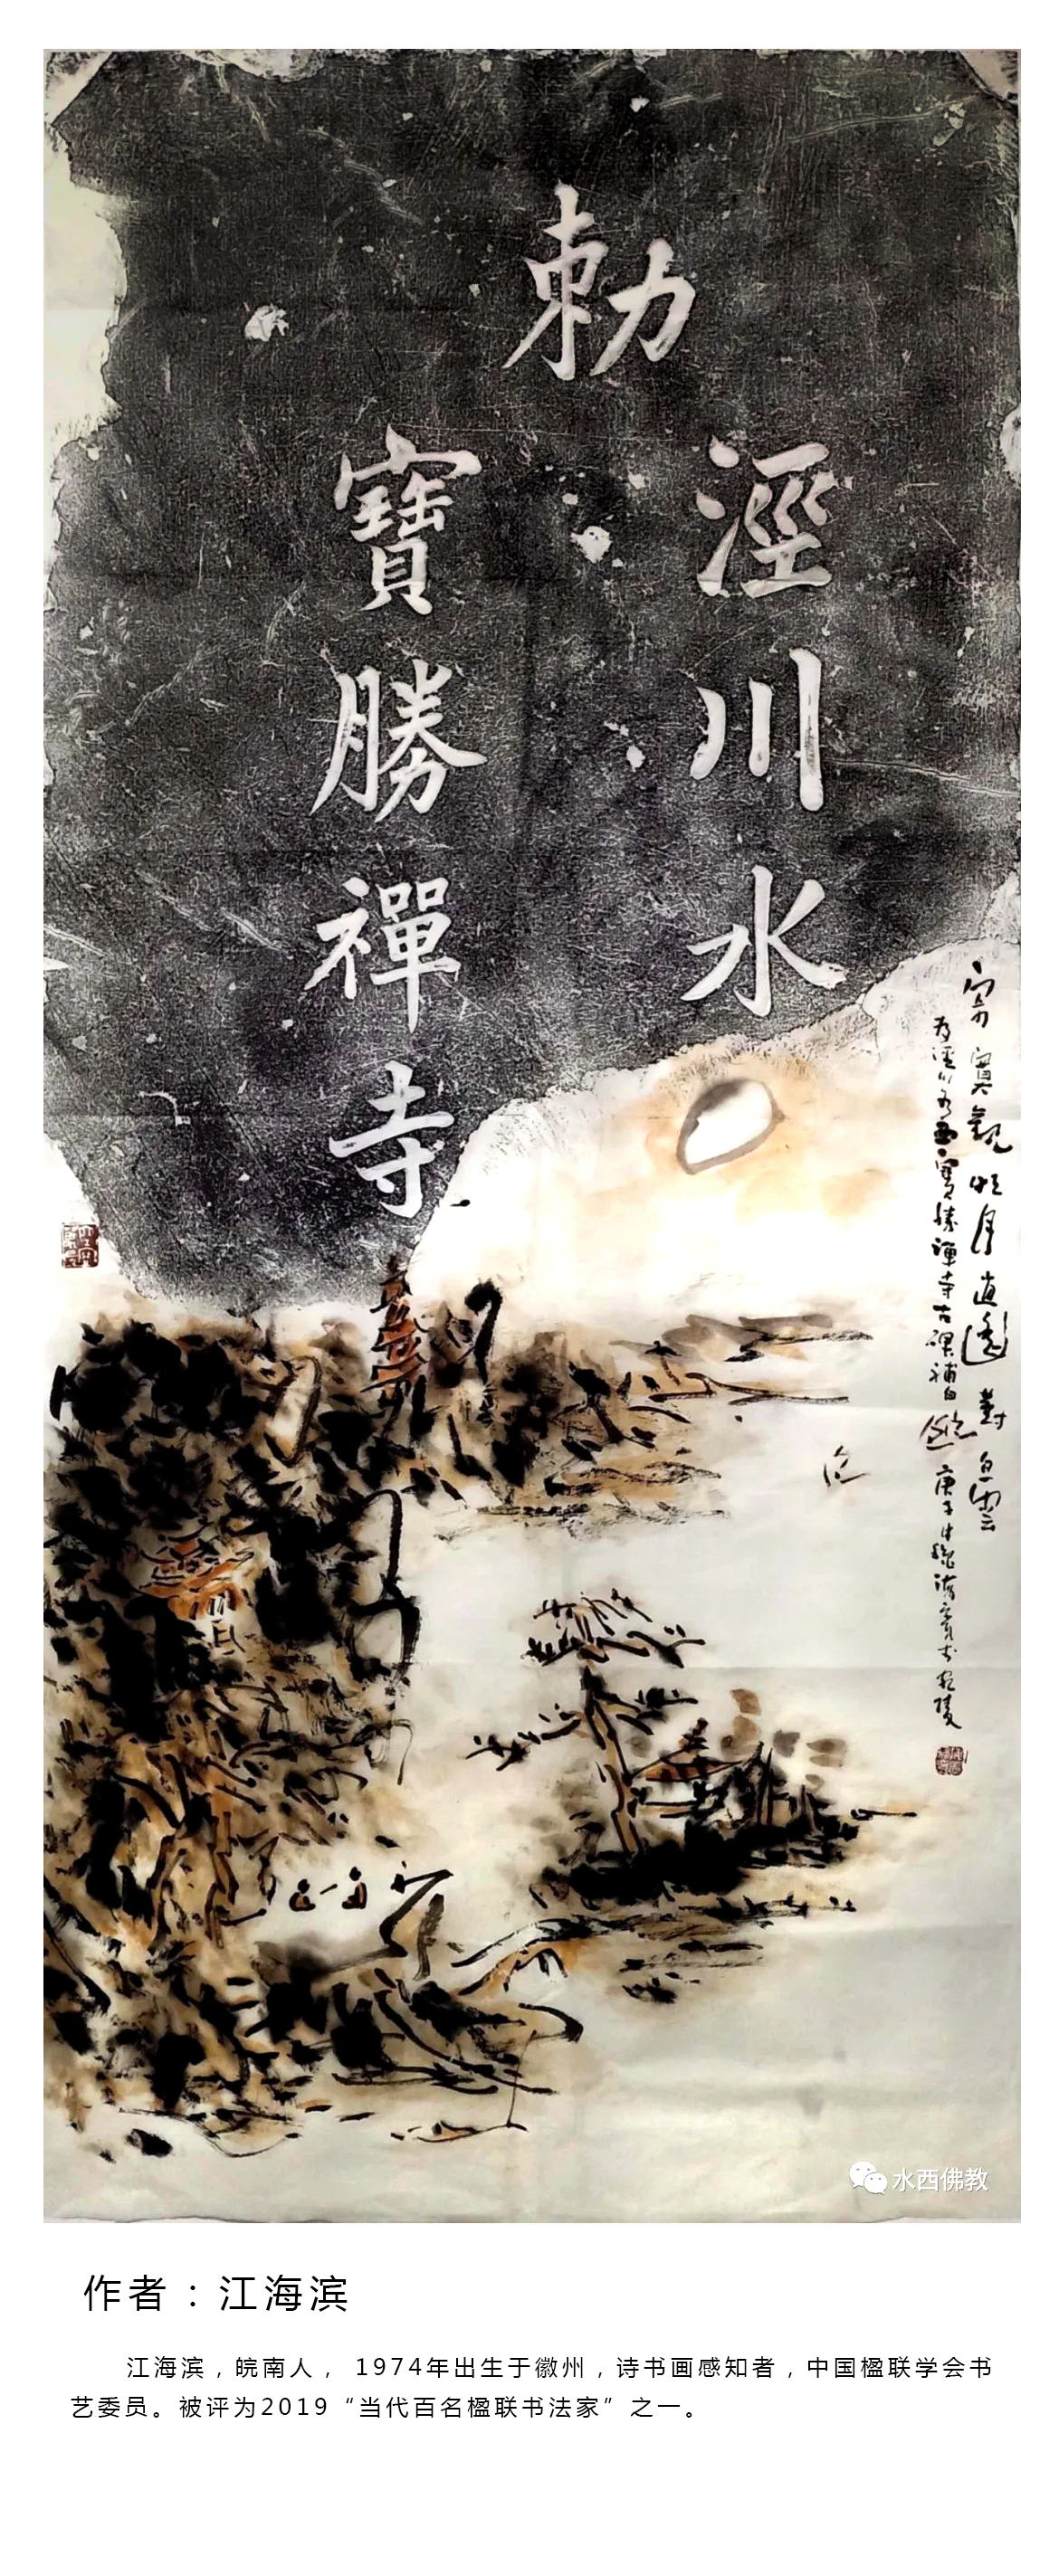 勅
涇川水
寶勝禪寺
寂寞觀明月逍遙對白雲
為涇川水西寶勝禪寺古碑補白
庚子中秋海濱於宛陵
水西佛教
作者：江海滨
江海滨，皖南人， 1974年出生于徽州，诗书画感知者，中国楹联学会书
艺委员。被评为2019“当代百名楹联书法家”之一。